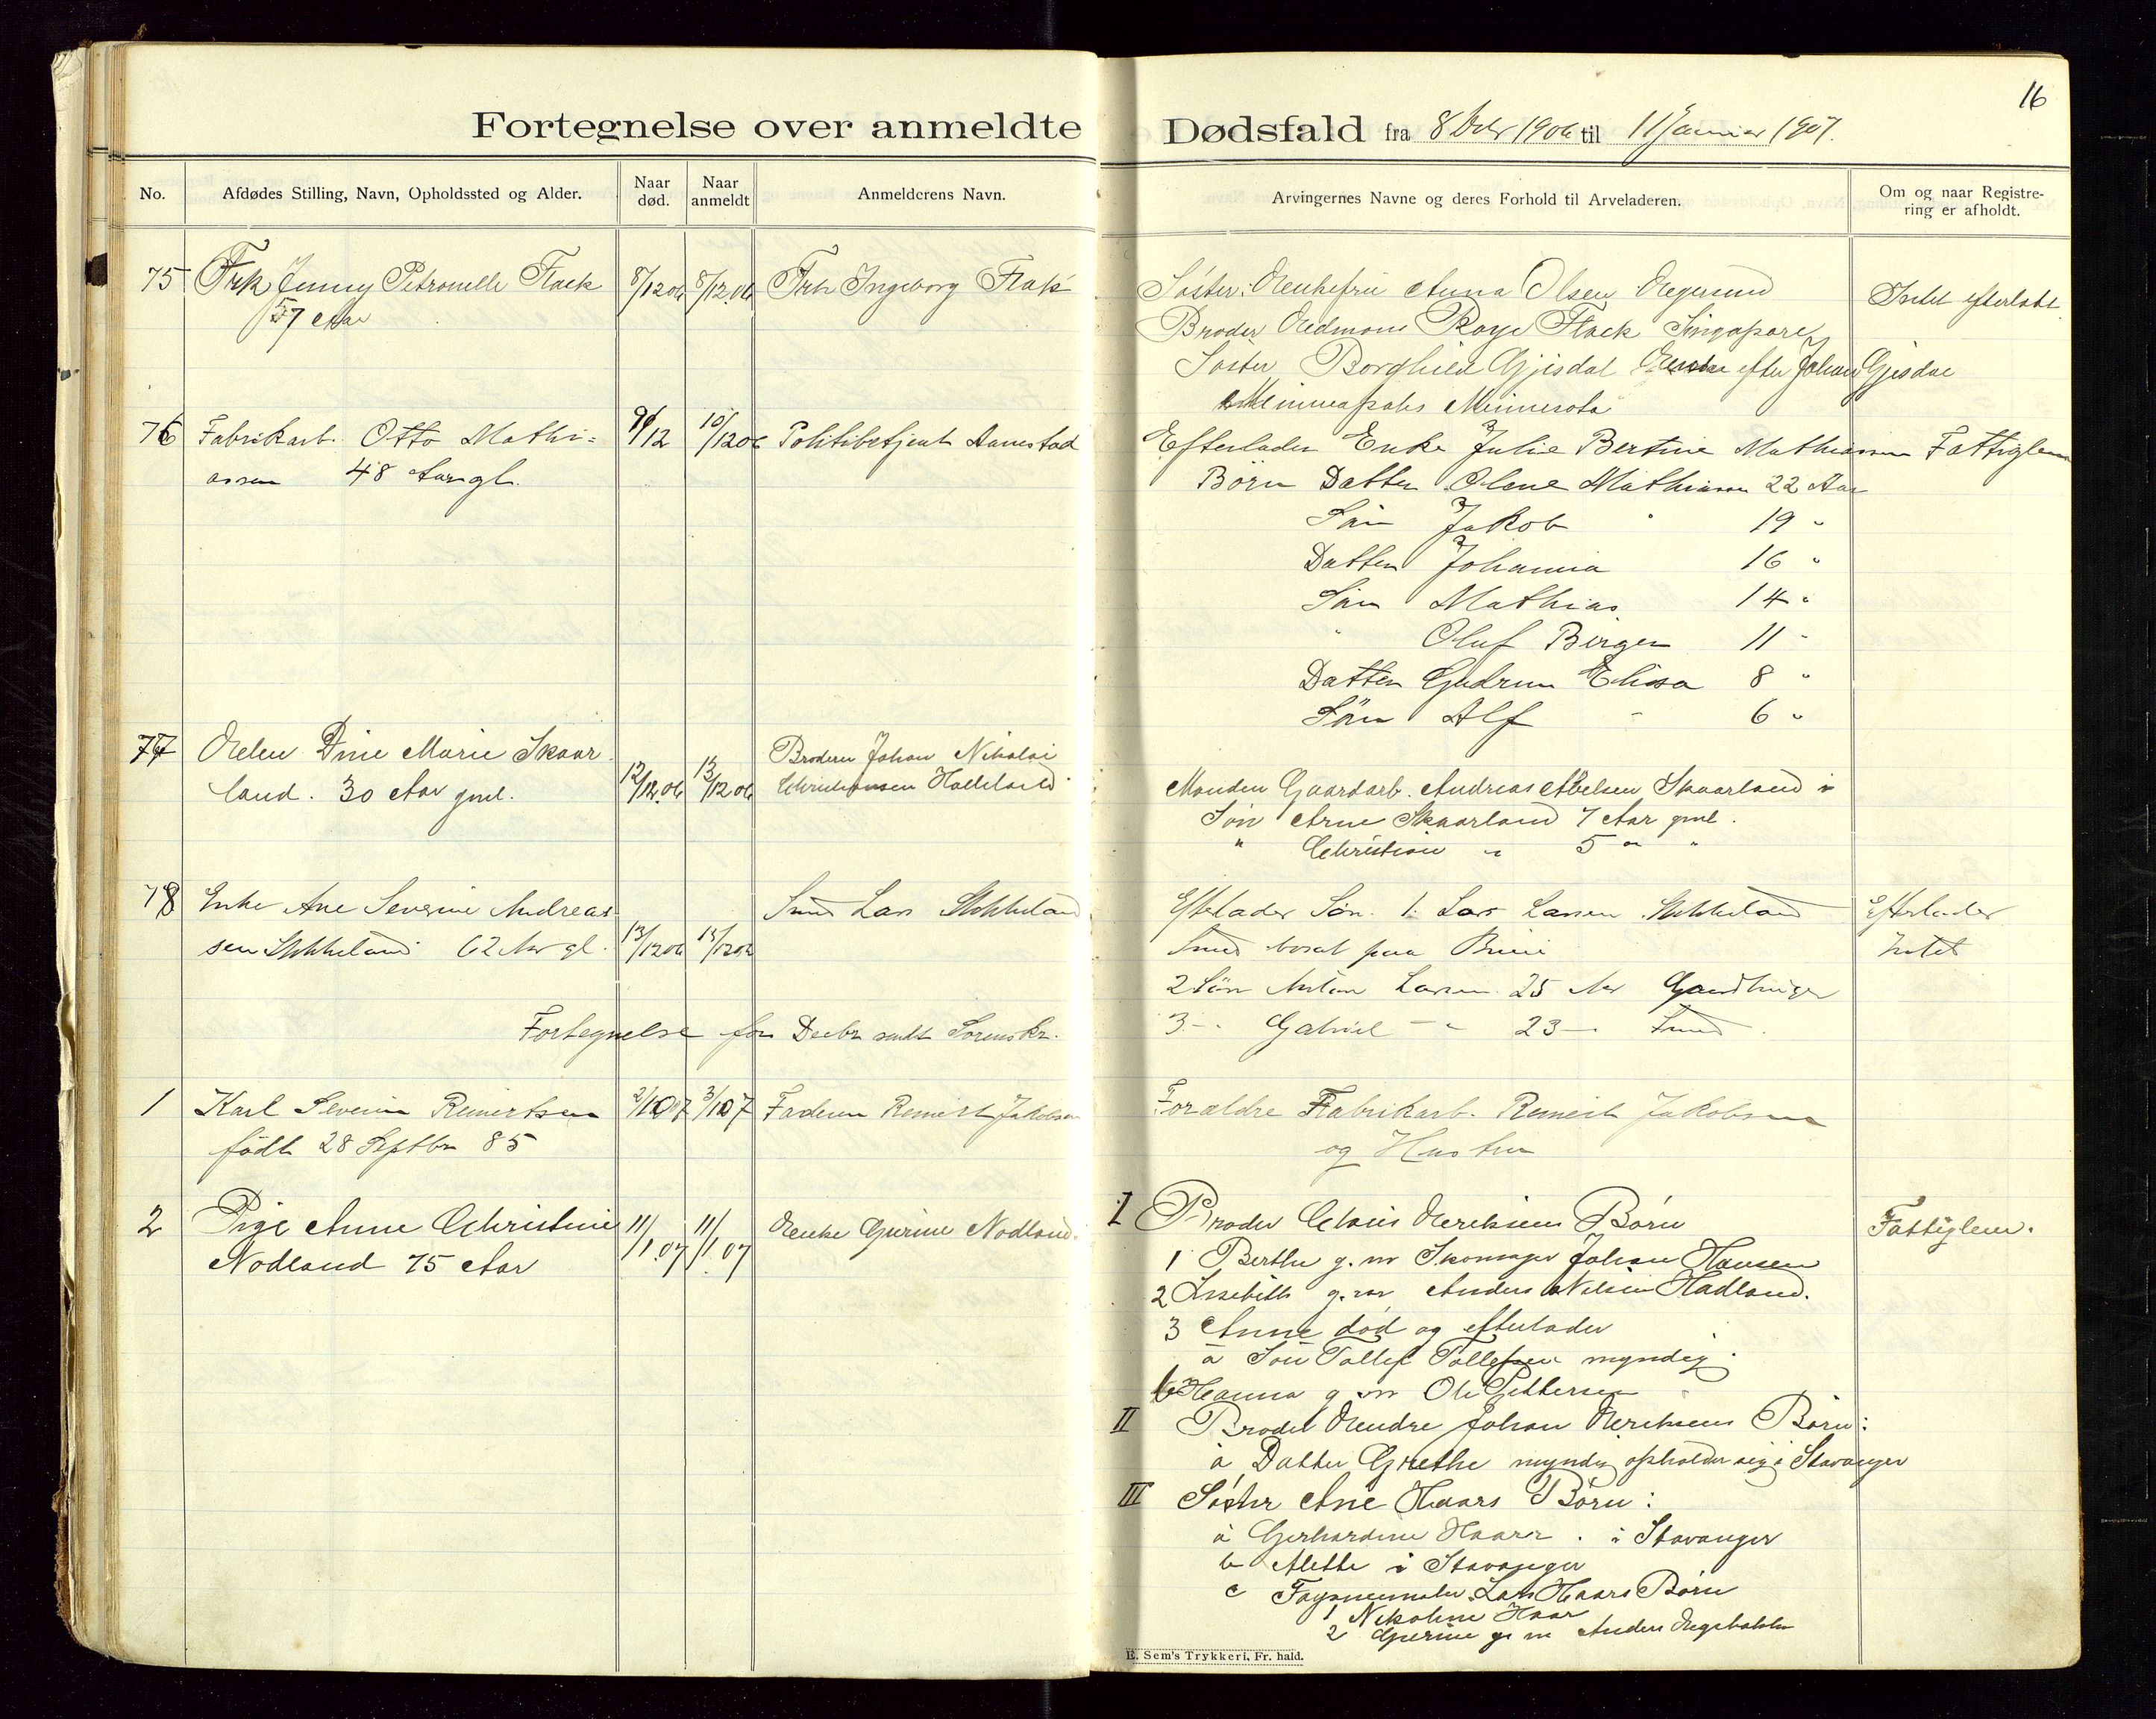 16
Fortegnelse over anmeldte Dødsfald fra 8 Debr 1906 til 11 Januar 1907.
No.
Afdødes Stilling, Navn, Opholdssted og Alder.
Naar død.
Naar anmeldt
Anmelderens Navn.
Arvingernes Navne og deres Forhold til Arveladeren.
Om og naar Registre-
ring er afholdt.
75 Frk Jenny Petronelle Flack 8/12 06 8/12.06 Frk Ingeborg Flak
57 Aar
Søster: Enkefru Anna Olsen Egersund
Intet efterladt
Broder Edmond Roye Flack Singapore
Søster Borghild Gjisdal Enke efter Johan Gjesdal
Minneapolis Minnesota
76 Fabrikarb. Otto Mathi=
assen 48 Aar gl.
9/12 10/12 06 Politibetjent Aanestad
Efterlader Enke Julie Bertine Mathiassen
Fattiglem
Børn Datter Olene Mathiassen 22 Aar
Søn Jakob " 19 "
Datter Johanna 16 "
Søn Mathias 14 "
" Oluf Birger 11 "
Datter Gudrun Elisa 8 "
Søn Alf - 6 "
77 Dine Marie Skaar
land. 30 Aar gml.
12/12.06 13/12 06
Broderen Johan Nikolai
Christiansen Helleland
Manden Gaardarb. Andreas Abelsen Skaarland
Søn Arne Skaarland 7 Aar gml.
" Christian " 5 " "
78 Enke Ane Severine Andreas
sen Stokkeland 62 Aar gl.
13/12 06 13/12 06
Smed Lars Stokkeland
Efterlader Søn. 1. Lars Larsen Stokkeland
Smed bosat paa Brune
Efterlader
Intet
2 Søn Anton Larsen 25 Aar
3 - Gabriel - " 23 - Smed
Fortegnelse for Decbr sendt Sorenskr.
1 Karl Severin Reinertsen 2/1 07 3/1 07 Faderen Reinert Jakobsen
født 28 Septbr 85
Forældre Fabrikarb. Reinert Jakobsen
og Hustru
2 Pige Anne Christine
Nodland 75 Aar
11/1.07 11/1.07
Enke Gurine Nodland.
I Broder Claus Eriksens Børn
Fattiglem.
1 Berthe g. m Skomager Johan Hansen
2 Lisebeth g. m Anders Nilsen Hadland.
3 Anne død og efterlader
a Søn Tollef Tollefsen myndig.
b Hanna g m Ole Pettersen
II Broder Endre Johan Eriksens Børn:
a Datter Grethe myndig opholder sig i Stavanger
III Søster Ane Haars Børn:
a Gerhardine Haarr . i Stavanger
b Alette i Stavanger
c Lars Haars Børn
1 Nikoline Haar
2 Gurine g. m Anders
E. Sem's Trykkeri, Fr. hald.